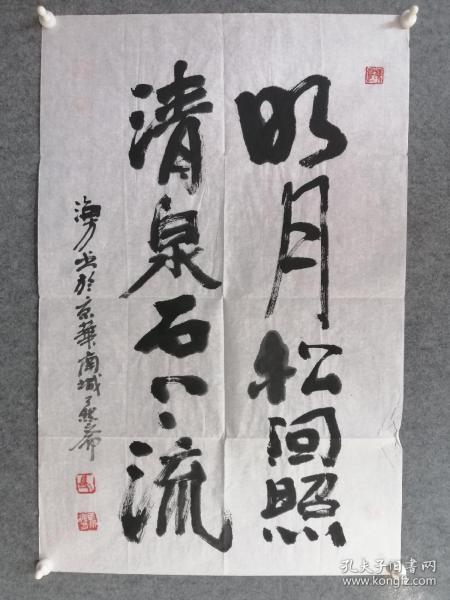 明月松间照
清泉石上流
海方书于京华南城
孔夫子旧书网
www.kongfz.com